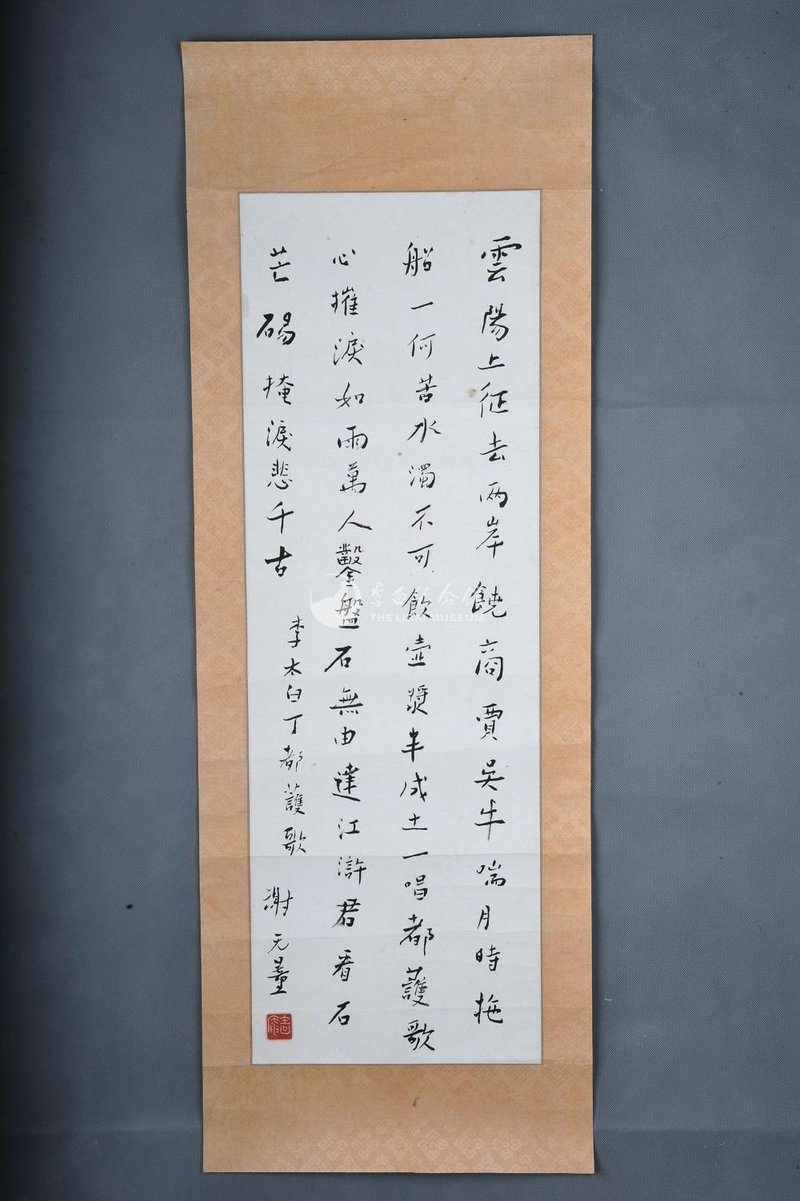 雲陽上征去两岸饒商賈吴牛喘月時拖
船一何苦水濁不可飲壺漿半成土一唱都護歌
心摧淚如雨萬人鑿盤石無由達江滸君看石
芒碭掩淚悲千古
李太白丁都護歌
謝无量
李白纪念馆
THE LIBAI MUSEUM